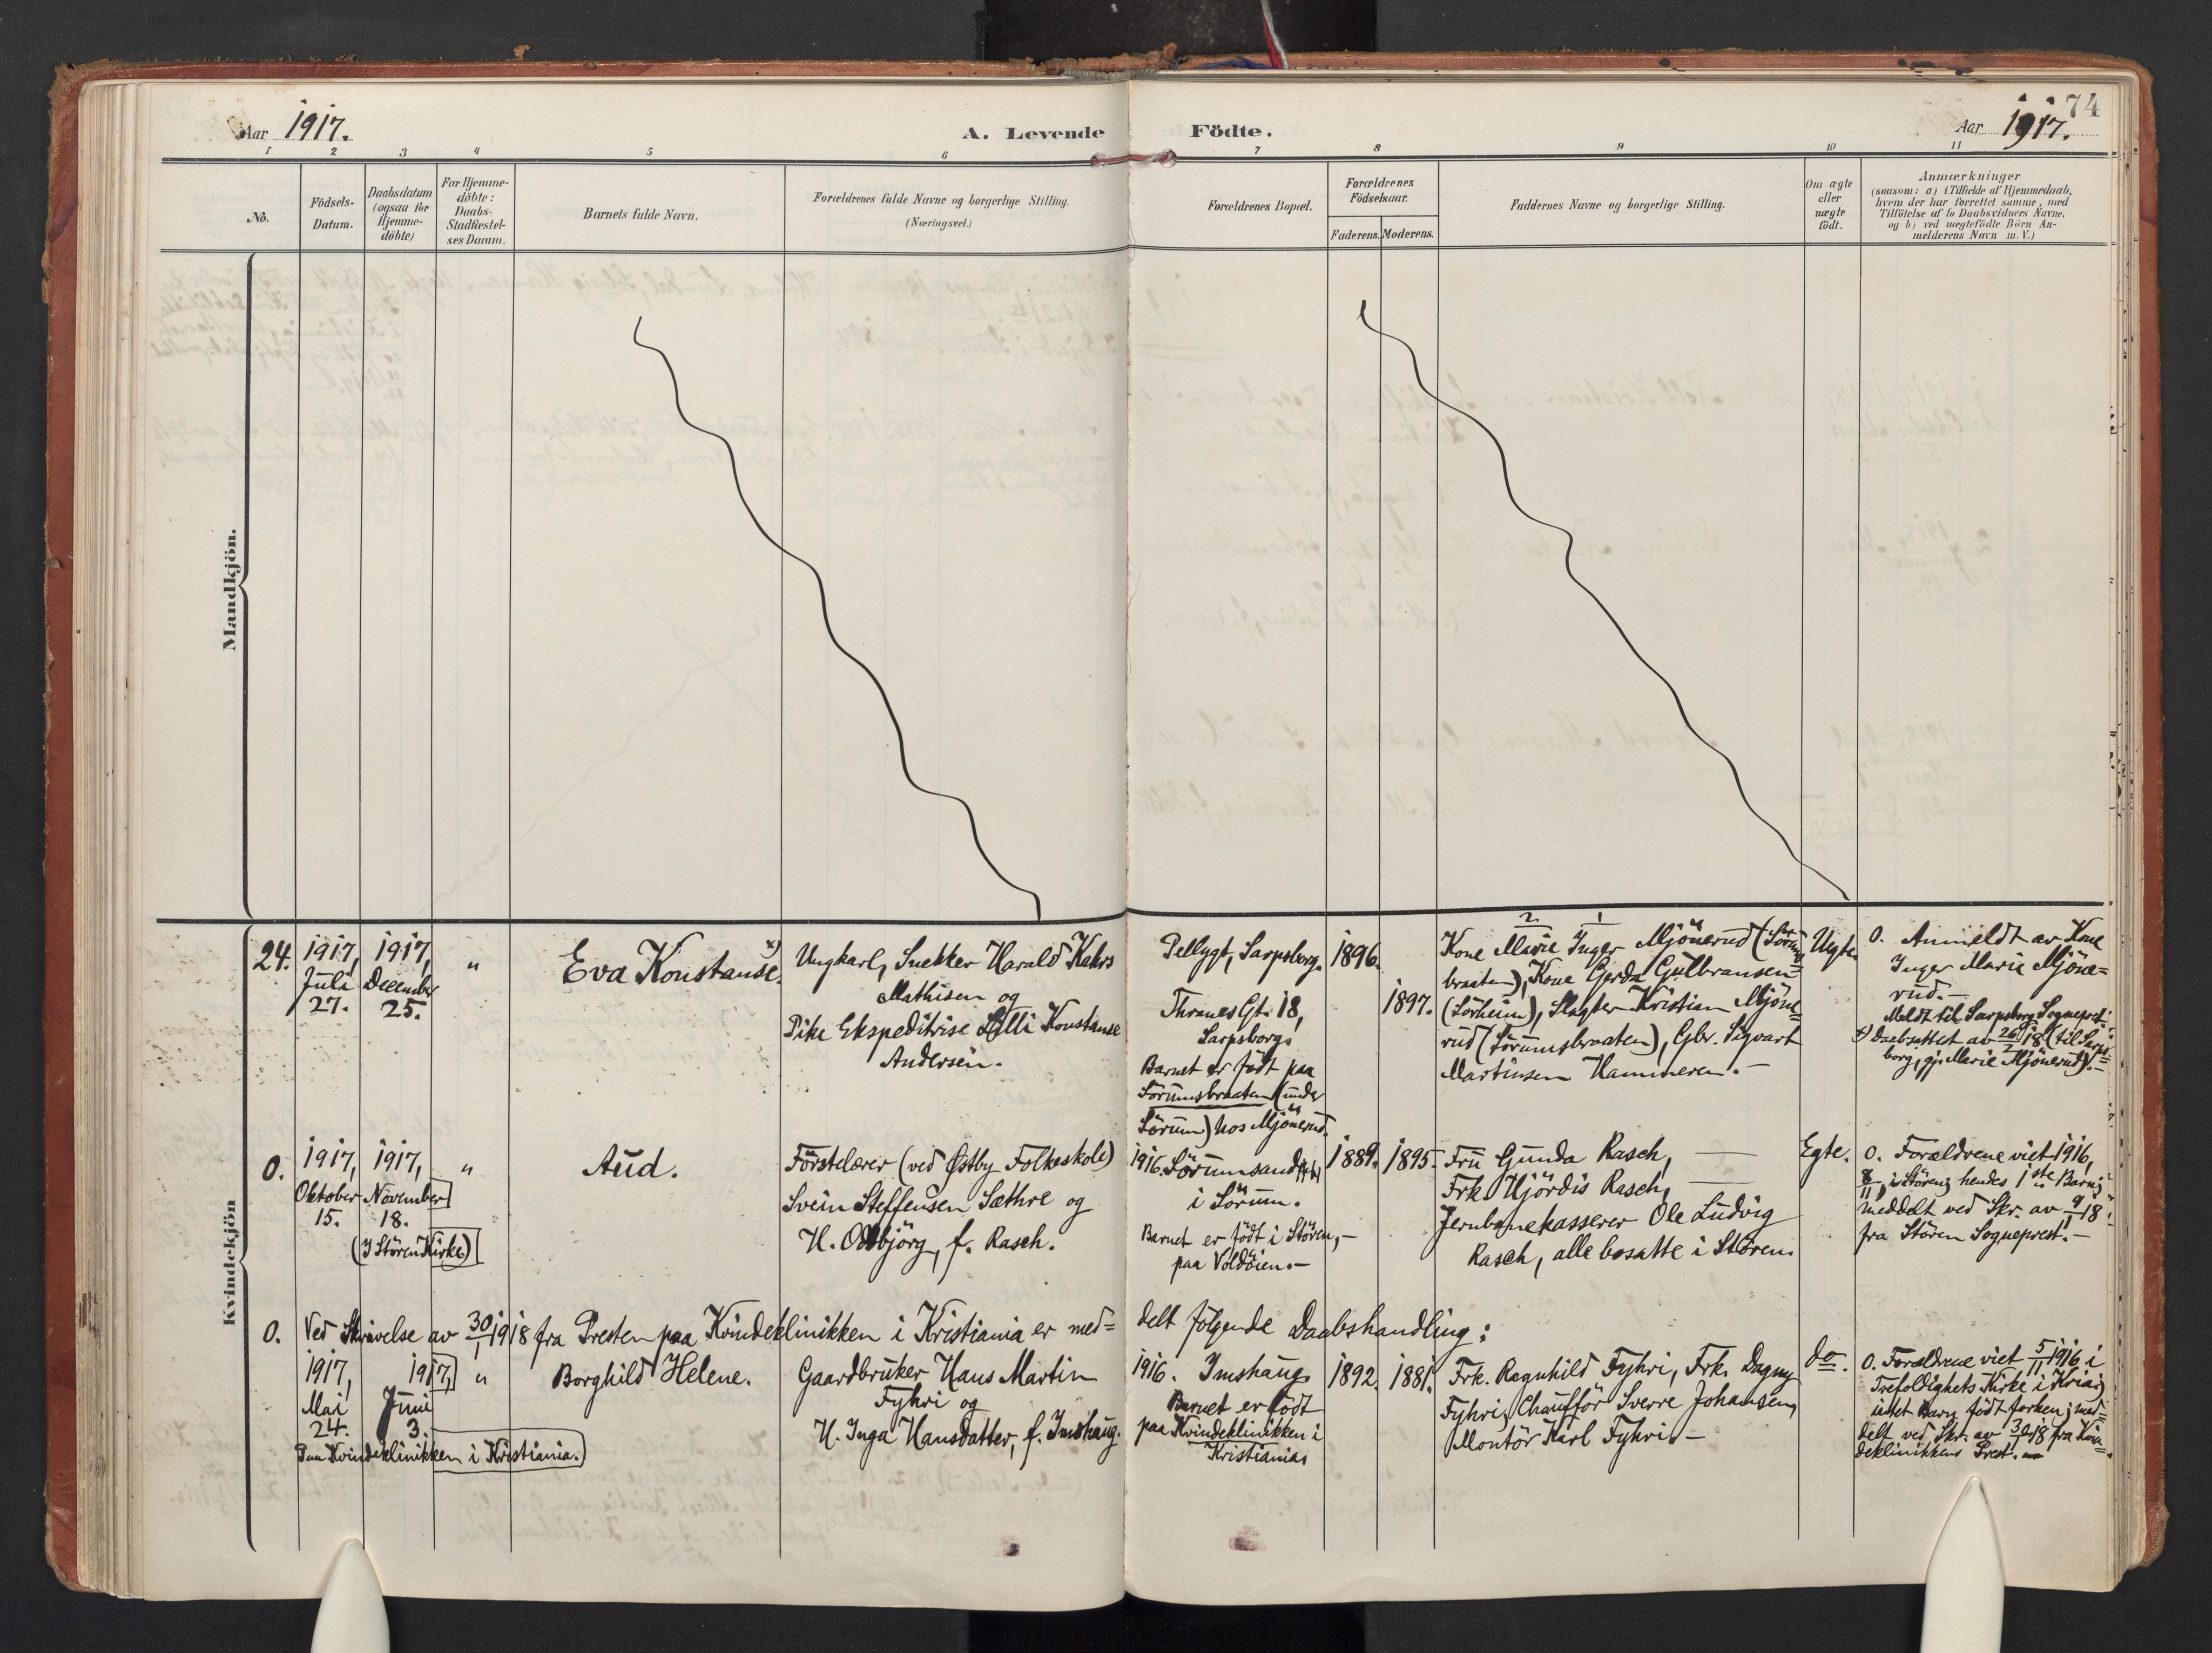 74
Aar 1917.
A. Levende Födte.
Aar 1917.
1 2 3 4 5 6 7 8 9 10 11
No.
Födsels-
Datum.
Daabsdatum
(ogsaa for
Hjemme-
döbte)
For Hjemme-
döbte:
Daabs-
Stadfæstel-
ses Datum.
Barnets fulde Navn.
Forældrenes fulde Navne og borgerlige Stilling.
(Næringsvei.)
Forældrenes Bopæl.
Forældrenes
Födselsaar.
Faderens. Moderens.
Faddernes Navne og borgerlige Stilling.
Om ægte
eller
uægte
födt.
Anmærkninger
(saasom: a) i Tilfælde af Hjemmedaab,
hvem der har forrettet samme, med
Tilföielse af to Daabsvidners Navne,
og b) ved uægtefödte Börn An-
melderens Navn m. V.)
Mandkjön.
Kvindekjön
24.
1917,
Juli
27.
1917,
December
25.
"
Eva Konstanse. x)
Ungkarl, Snekker Harald Kahrs
Mathisen og
Pike Ekspeditrise Lilli Konstanse
Andersen.
Pellygt, Sarpsborg.
Thranes Gt. 18,
Sarpsborg.
Barnet er födt paa
Sörumsbraaten (under
Sörum) hos Mjönerud.
1896.
1897.
2 1
Kone Marie Inger Mjönerud (Sörums-
braaten), Kone Gerda Gulbransen
(Sörheim), Slagter Kristian Mjöne-
rud (Sörumsbraaten), Gbr. Sigvart
Martinsen Hammeren. –
Uegte.
0. Anmeldt av Kone
Inger Marie Mjöne-
rud. –
Meldt til Sarpsborg Sogneprest.
x) Daabsattest av 26/2 18 (til Sarps-
borg, gj. Marie Mjönerud). –
0.
1917,
Oktober
15.
1917,
November
18.
(I Stören Kirke)
"
Aud.
Förstelærer (ved Østby Folkeskole)
Svein Steffensen Sæthre og
H. Oddbjörg, f. Rasch.
1916. Sörumsand
i Sörum.
Barnet er födt i Stören, –
paa Voldöien. –
1889. 1895.
Fru Gunda Rasch, —
Frk. Hjördis Rasch, —
Jernbanekasserer Ole Ludvig
Rasch, alle bosatte i Stören.
Egte.
0. Forældrene viet 1916,
8/11, i Stören; hendes 1ste Barn;
meddelt ved Skr. av 9/1 18
fra Stören Sogneprest. –
0.
Ved Skrivelse av 30/1 1918 fra Presten paa Kvindeklinikken i Kristiania er med=
delt følgende Daabshandling:
1917,
Mai
24.
1917,
Juni
3.
"
Paa Kvindeklinikken i Kristiania.
Borghild Helene.
Gaardbruker Hans Martin
Fyhri og
H. Inga Hansdatter, f. Imshaug.
1916. Imshaug.
Barnet er födt
paa Kvindeklinikken i
Kristiania.
1892. 1881.
Frk. Ragnhild Fyhri, Frk. Dagny
Fyhri, Chaufför Sverre Johansen,
Montör Karl Fyhri. –
do.
0. Forældrene viet 5/11 1916 i
Trefoldighets Kirke i Kria;
intet Barn födt forken; med-
delt ved Skr. av 30/1 18 fra Kvin-
deklinikkens Prest. –